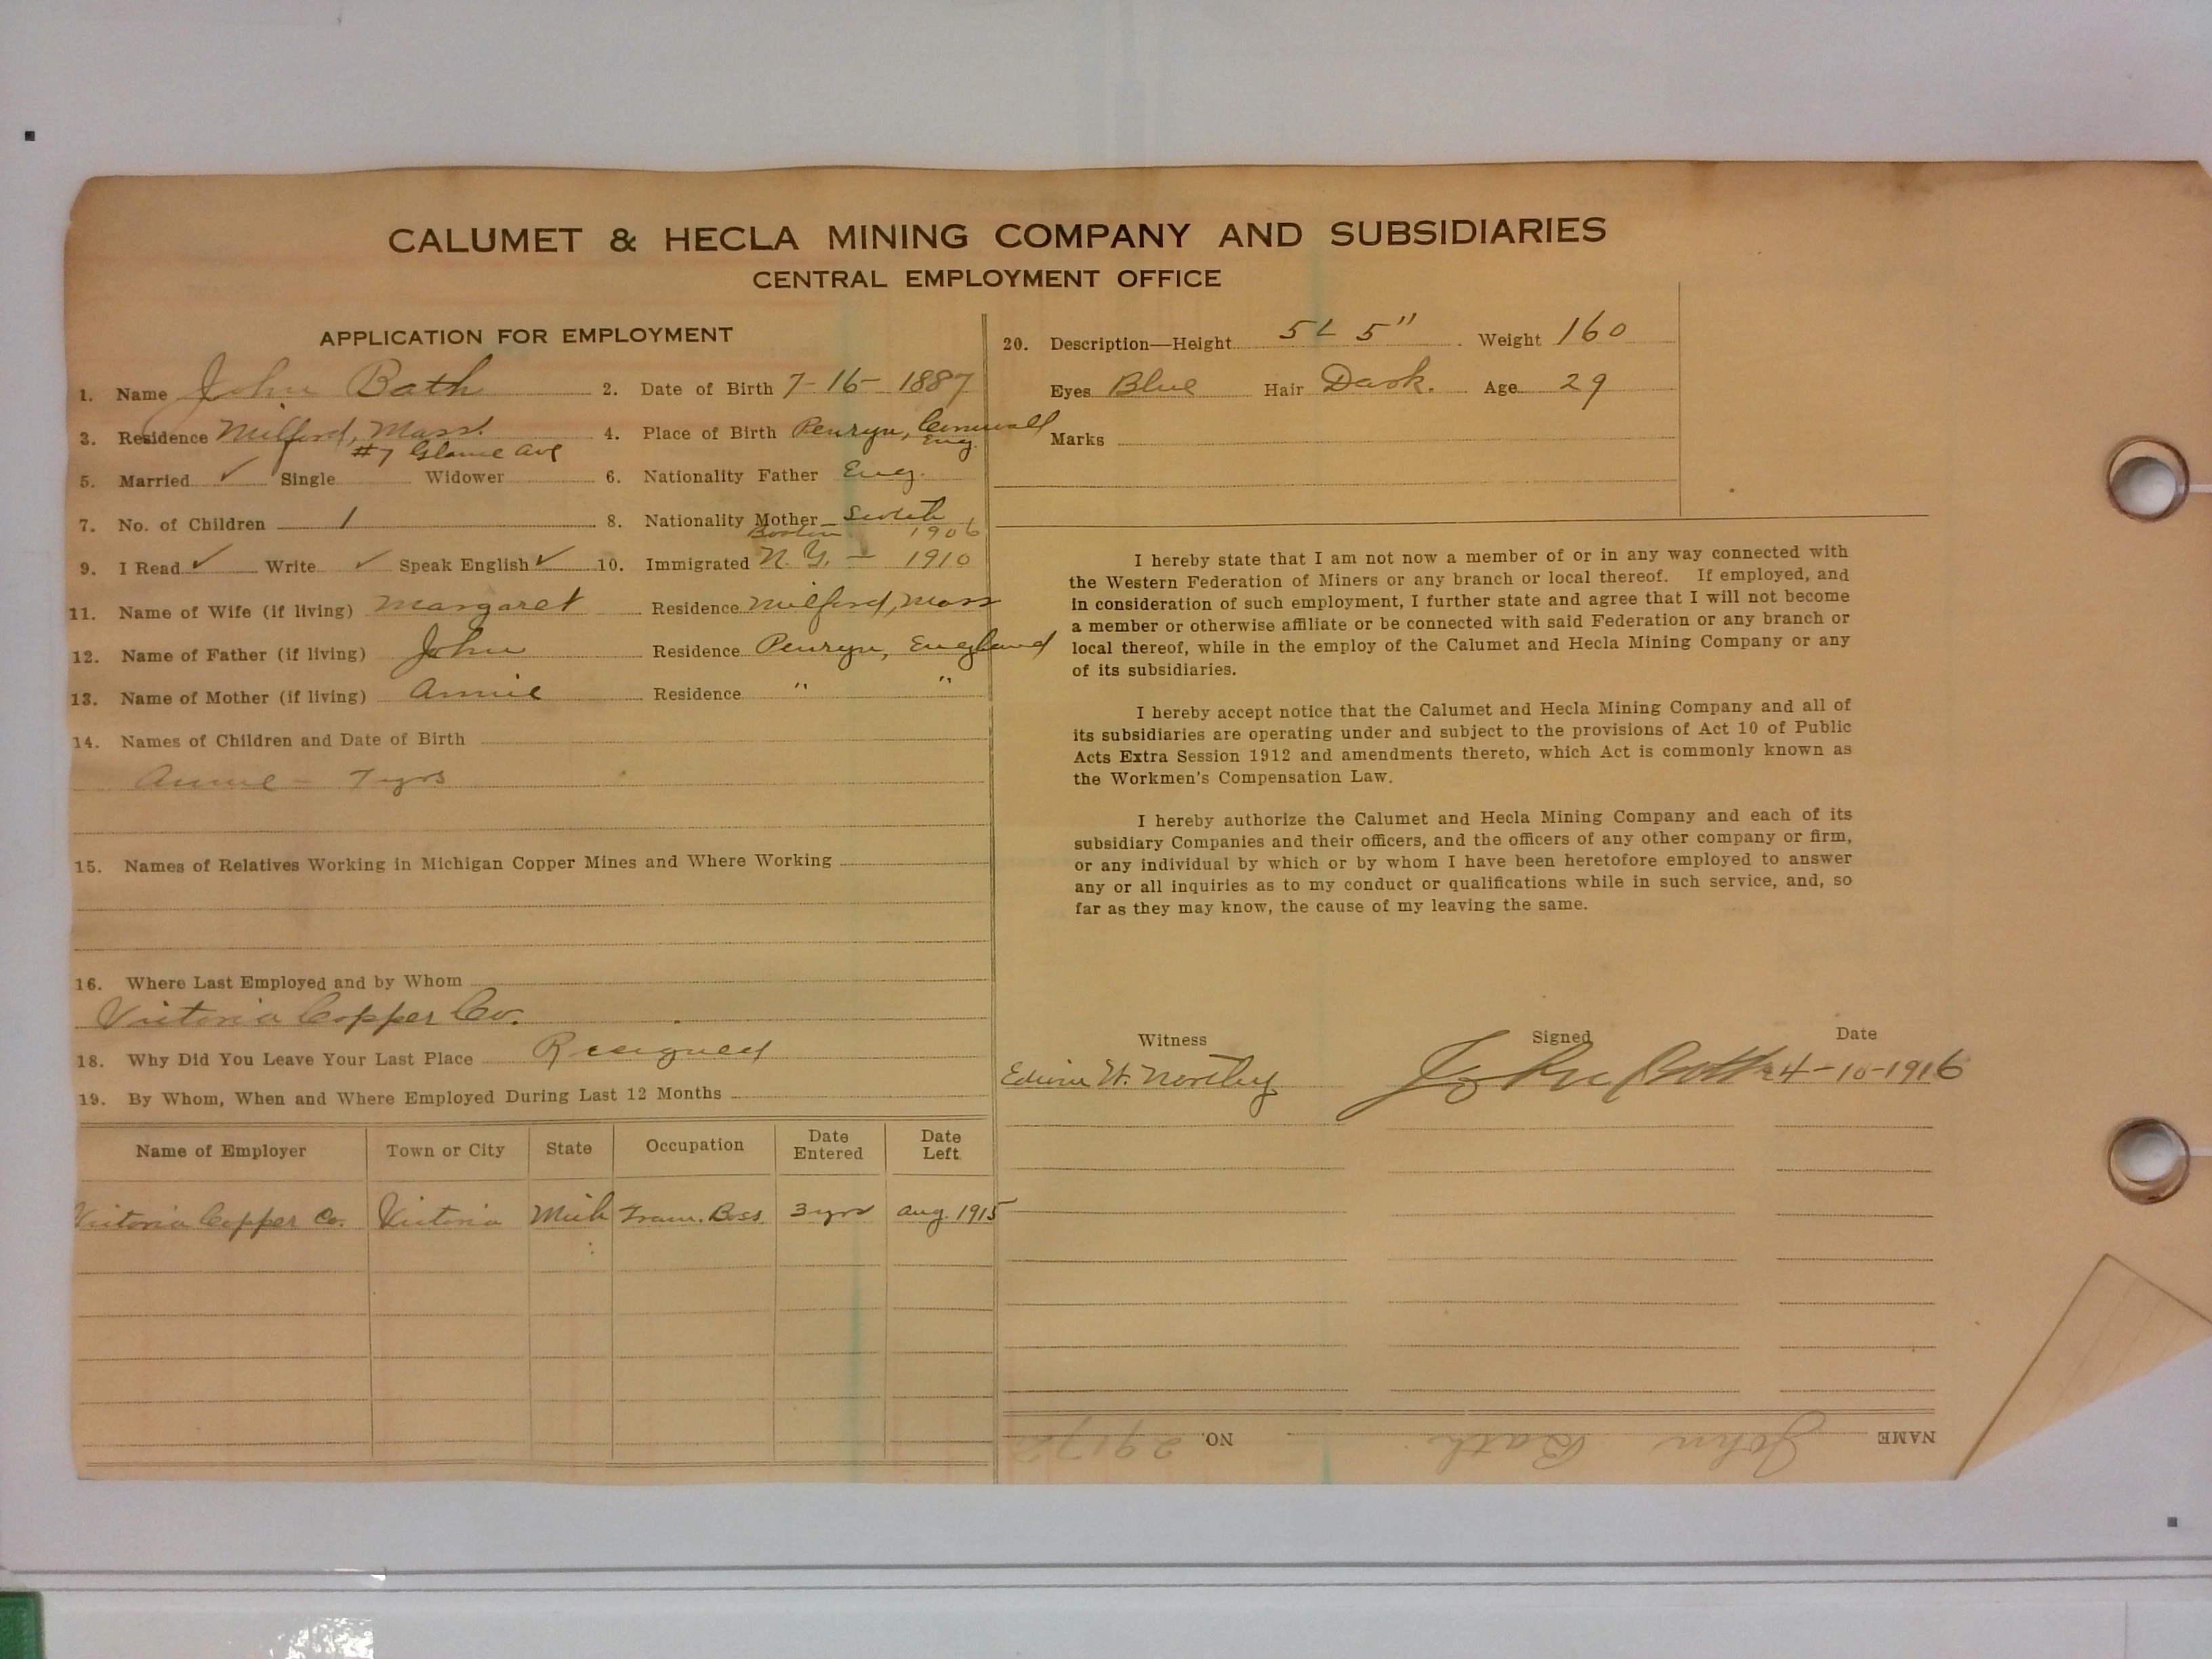 CALUMET & HECLA MINING COMPANY AND SUBSIDIARIES
CENTRAL EMPLOYMENT OFFICE
APPLICATION FOR EMPLOYMENT
1. Name John Bath 2. Date of Birth 7-16-1887
3. Residence Milford, Mass. 4. Place of Birth Penryn, Cornwall
#7 Ave Eng.
5. Married ✓ Single Widower 6. Nationality Father Eng.
7. No. of Children 1 8. Nationality Mother Scotch
Boston 1906
9. I Read ✓ Write ✓ Speak English ✓ 10. Immigrated N.Y. - 1910
11. Name of Wife (if living) Margaret Residence Milford, Mass
12. Name of Father (if living) John Residence Penryn, England
13. Name of Mother (if living) Annie Residence " "
14. Names of Children and Date of Birth
Annie - 7 yrs
15. Names of Relatives Working in Michigan Copper Mines and Where Working
16. Where Last Employed and by Whom
Victoria Copper Co.
18. Why Did You Leave Your Last Place Resigned
19. By Whom, When and Where Employed During Last 12 Months
Name of Employer Town or City State Occupation Date Entered Date Left
Victoria Copper Co. Victoria Mich Tram. Boss 3 yrs Aug. 1915
20. Description—Height 5 5" Weight 160
Eyes Blue Hair Dark. Age 29
Marks
I hereby state that I am not now a member of or in any way connected with
the Western Federation of Miners or any branch or local thereof. If employed, and
in consideration of such employment, I further state and agree that I will not become
a member or otherwise affiliate or be connected with said Federation or any branch or
local thereof, while in the employ of the Calumet and Hecla Mining Company or any
of its subsidiaries.
I hereby accept notice that the Calumet and Hecla Mining Company and all of
its subsidiaries are operating under and subject to the provisions of Act 10 of Public
Acts Extra Session 1912 and amendments thereto, which Act is commonly known as
the Workmen's Compensation Law.
I hereby authorize the Calumet and Hecla Mining Company and each of its
subsidiary Companies and their officers, and the officers of any other company or firm,
or any individual by which or by whom I have been heretofore employed to answer
any or all inquiries as to my conduct or qualifications while in such service, and, so
far as they may know, the cause of my leaving the same.
Witness Signed Date
Edwin W. Northey John Bath 4-10-1916
NAME John Bath NO.